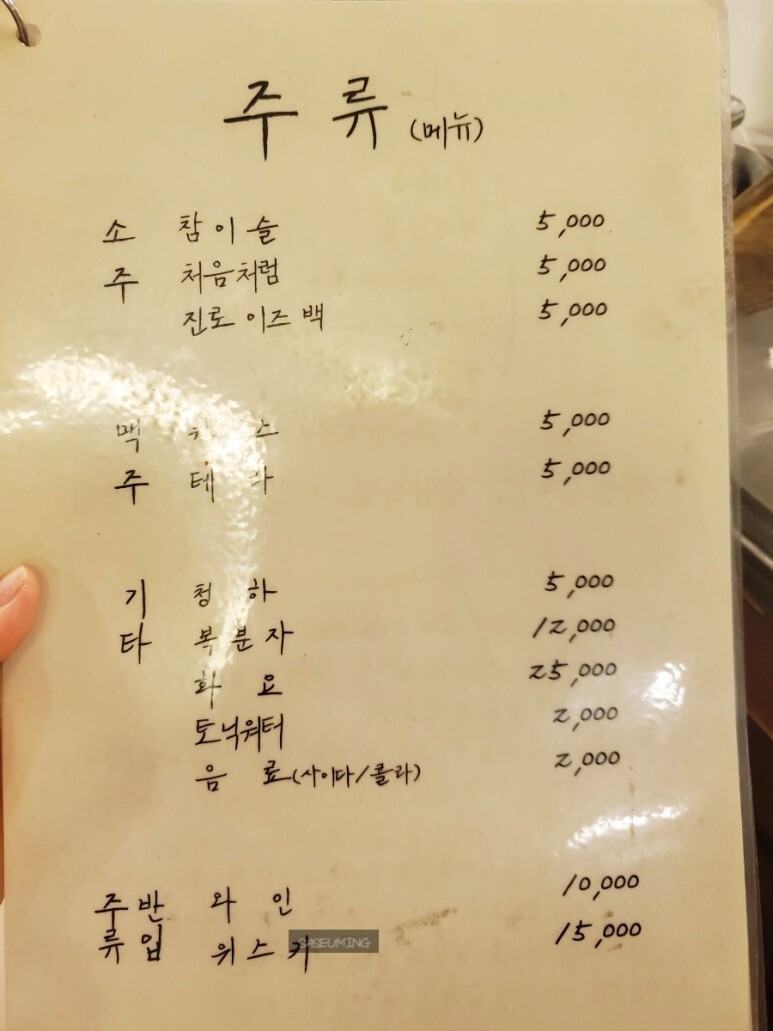 주 류 (메뉴)
소 참이슬 5,000
주 처음처럼 5,000
진로 이즈 백 5,000
맥 스 5,000
주 테라 5,000
기 청 하 5,000
타 복분자 12,000
화 요 25,000
토닉워터 2,000
음 료(사이다/콜라) 2,000
주반 와 인 10,000
류입 위스키 15,000
SASEUMING